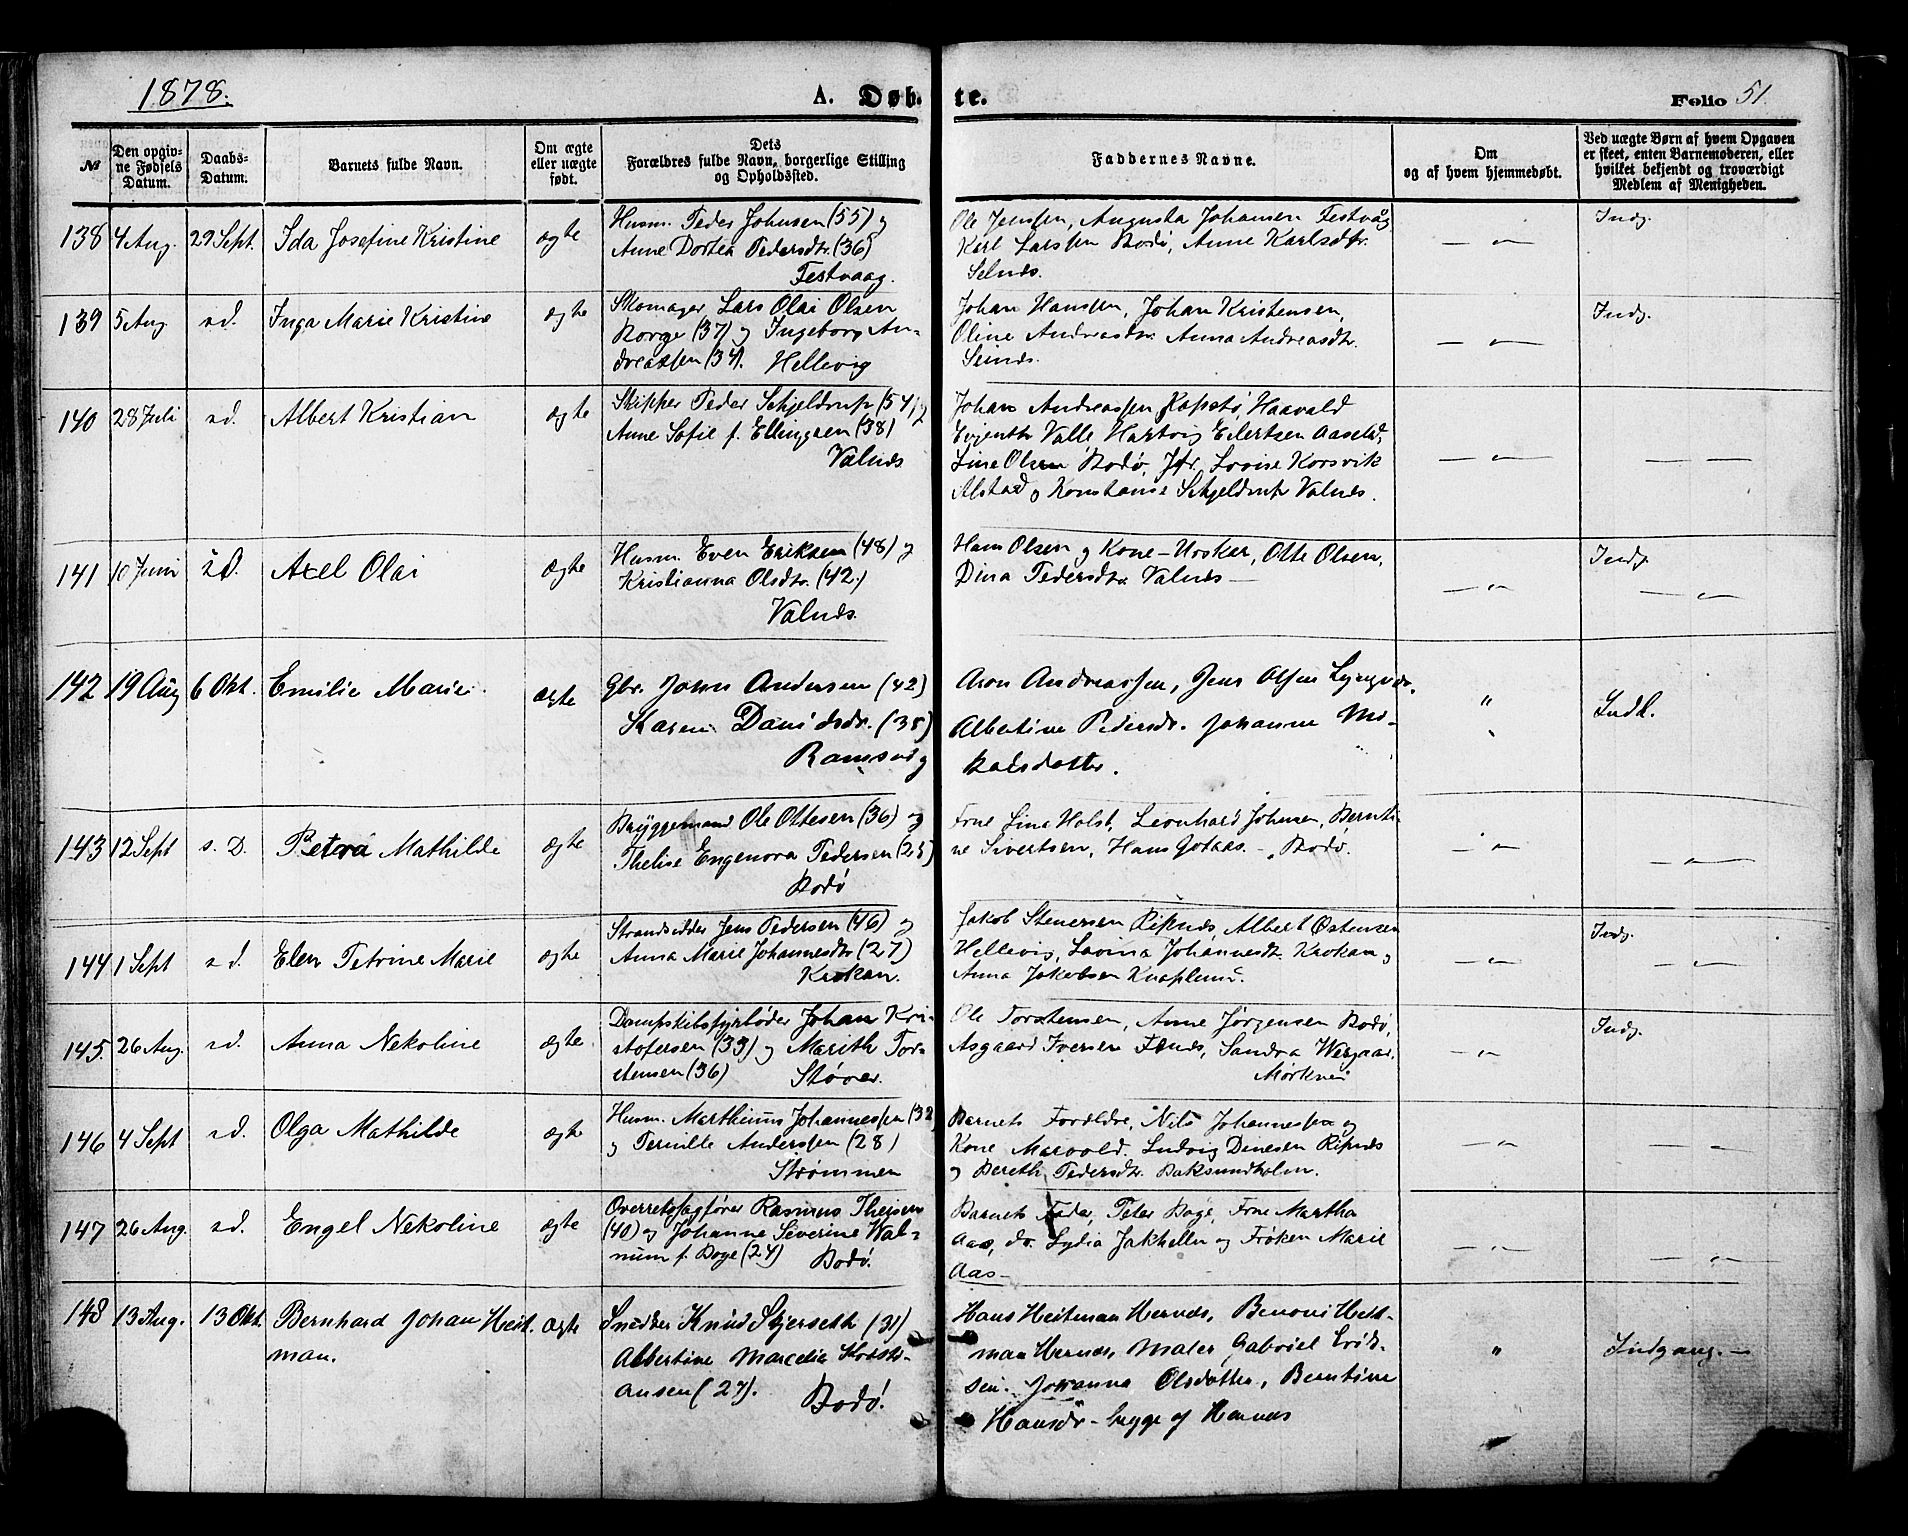 1878.
A. Døbte.
Folio 51.
№
Den opgivne Fødsels Datum.
Daabs-Datum.
Barnets fulde Navn.
Om ægte eller uægte født.
Dets Forældres fulde Navn, borgerlige Stilling og Opholdssted.
Faddernes Navne.
Om og af hvem hjemmedøbt.
Ved uægte Børn af hvem Opgaven er skeet, enten Barnemoderen, eller hvilket bekjendt og troværdigt Medlem af Menigheden.
138 4 Aug. 29 Sept. Ida Josefine Kristine ægte
Husm. Peder Johnsen (55) og
Anne Dortea Pedersdtr. (36)
Festvaag.
Ole Jenssen, Augusta Johansen Festvåg
Karl Larssen Bodø, Anne Karlsdtr.
Selnæs.
Indg.
139 5 Aug. s.d. Inga Marie Kristine ægte
Skomager Lars Olai Olsen
Borge (37) og Ingeborg An-
dreassen (34). Hellevig
Johan Hanssen, Johan Kristensen,
Oline Andreasdtr. Anna Andreasdtr.
Seines.
Indg.
140 28 Juli s.d. Albert Kristian ægte
Skipper Peder Schjeldrup (54) og
Anne Sofie f. Ellingsen (38)
Valnæs
Johan Andreassen Kapstø, Haavald
Evjenth Valle Hartvig Eilertsen Aaselid,
Line Olsen Bodø, Jfr. Lovise Korsvik
Alstad og Konstanse Schjeldrup Valnes.
141 10 Juni s.d. Axel Olai ægte
Husm. Even Eriksen (48) og
Kristianna Olsdtr. (42.)
Valnæs.
Hans Olsen og Kone – Uosker, Otte Olsen,
Dina Pedersdtr. Valnæs –
Indg.
142 19 Aug 6 Okt. Emilie Marie. ægte
Gbr. John Andersen (42)
Karen Davidsdr. (38)
Ramsvig
Aron Andreassen, Jens Olsen
Albertine Pedersdr. Johanne Mi-
kalsdatter.
" Indl.
143 12 Sept s. D. Petra Mathilde ægte
Bryggemand Ole Ottesen (36) og
Thelise Engenora Pedersen (25)
Bodø
Frue Lina Holst, Leonhard Johnsen, Bernti-
ne Sivertsen, Hans Gotaas. – Bodø.
144 1 Sept s.d. Elen Petrine Marie ægte
Strandsidder Jens Pedersen (46) og
Anna Marie Johannesdtr (27)
Krokan.
Jakob Stenersen Ripnes, Albert Østensen
Hellevig, Lovina Johannesdtr. Krokan og
Anna Jakobsen Knaplund.
Indg.
145. 26 Aug. s.d. Anna Nekoline ægte
Dampskibsfyrbøder Johan Kri-
stofersen (39) og Marith Tor-
stensen (36) Støver.
Ole Torstensen, Anne Jørgensen Bodø,
Asgaard Iversen Sandra
Mørkved
Indg.
146 4 Sept s.d. Olga Mathilde ægte
Husm. Marthinus Johannessen (32)
og Pernille Anderssen (28)
Strømmen
Barnets Forældre, Nils Johannessen og
Kone Marvold. Ludvig Dinesen Ripnæs
og Bereth Pedersdtr. Baksundholm.
147 26 Aug. s.d. Engel Nekoline ægte
Overretssagfører Rasmus Thesen
(40) og Johanne Severine Wal-
num f. Boye (24) Bodø.
Barnets Fader, Peter Boye, Frue Martha
Aas, do. Lydia Jakhelln og Frøken Marie
Aas –
148 13 Aug. 13 Okt. Bernhard Johan Heit-
man. ægte
Snedker Knud Skjerseth (31)
Albertine Marcelia Kristi-
ansen (27). Bodø.
Hans Heitman Hernes, Benoni Heit-
man Hernes, Maler Gabriel Erik-
sen. Johanna Olsdatter, Berntine
Hansdr – begge af Hernes
" Indgang. –